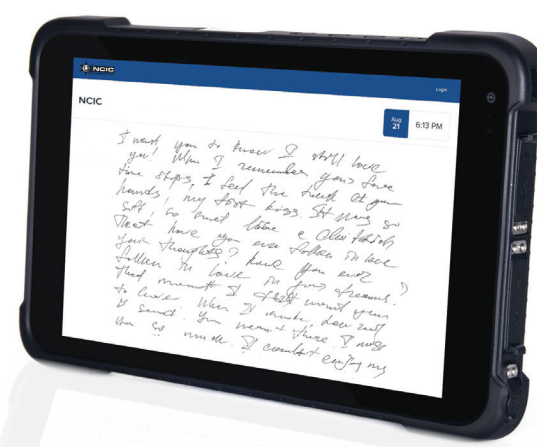 NCIC
Login
NCIC
Aug
21
6:13 PM
I want you to know I still love
you! When I remember your face
time stops, to feel the touch of your
hands, my first kiss. It was so
soft, so sweet like a
That have you ever fallen in love
your thoughts? have you ever
fallen in love in your dreams?
That moment I didn't want you
to leave. When I awoke, how
I . You weren't there. I miss
you so much. I couldn't enjoy my